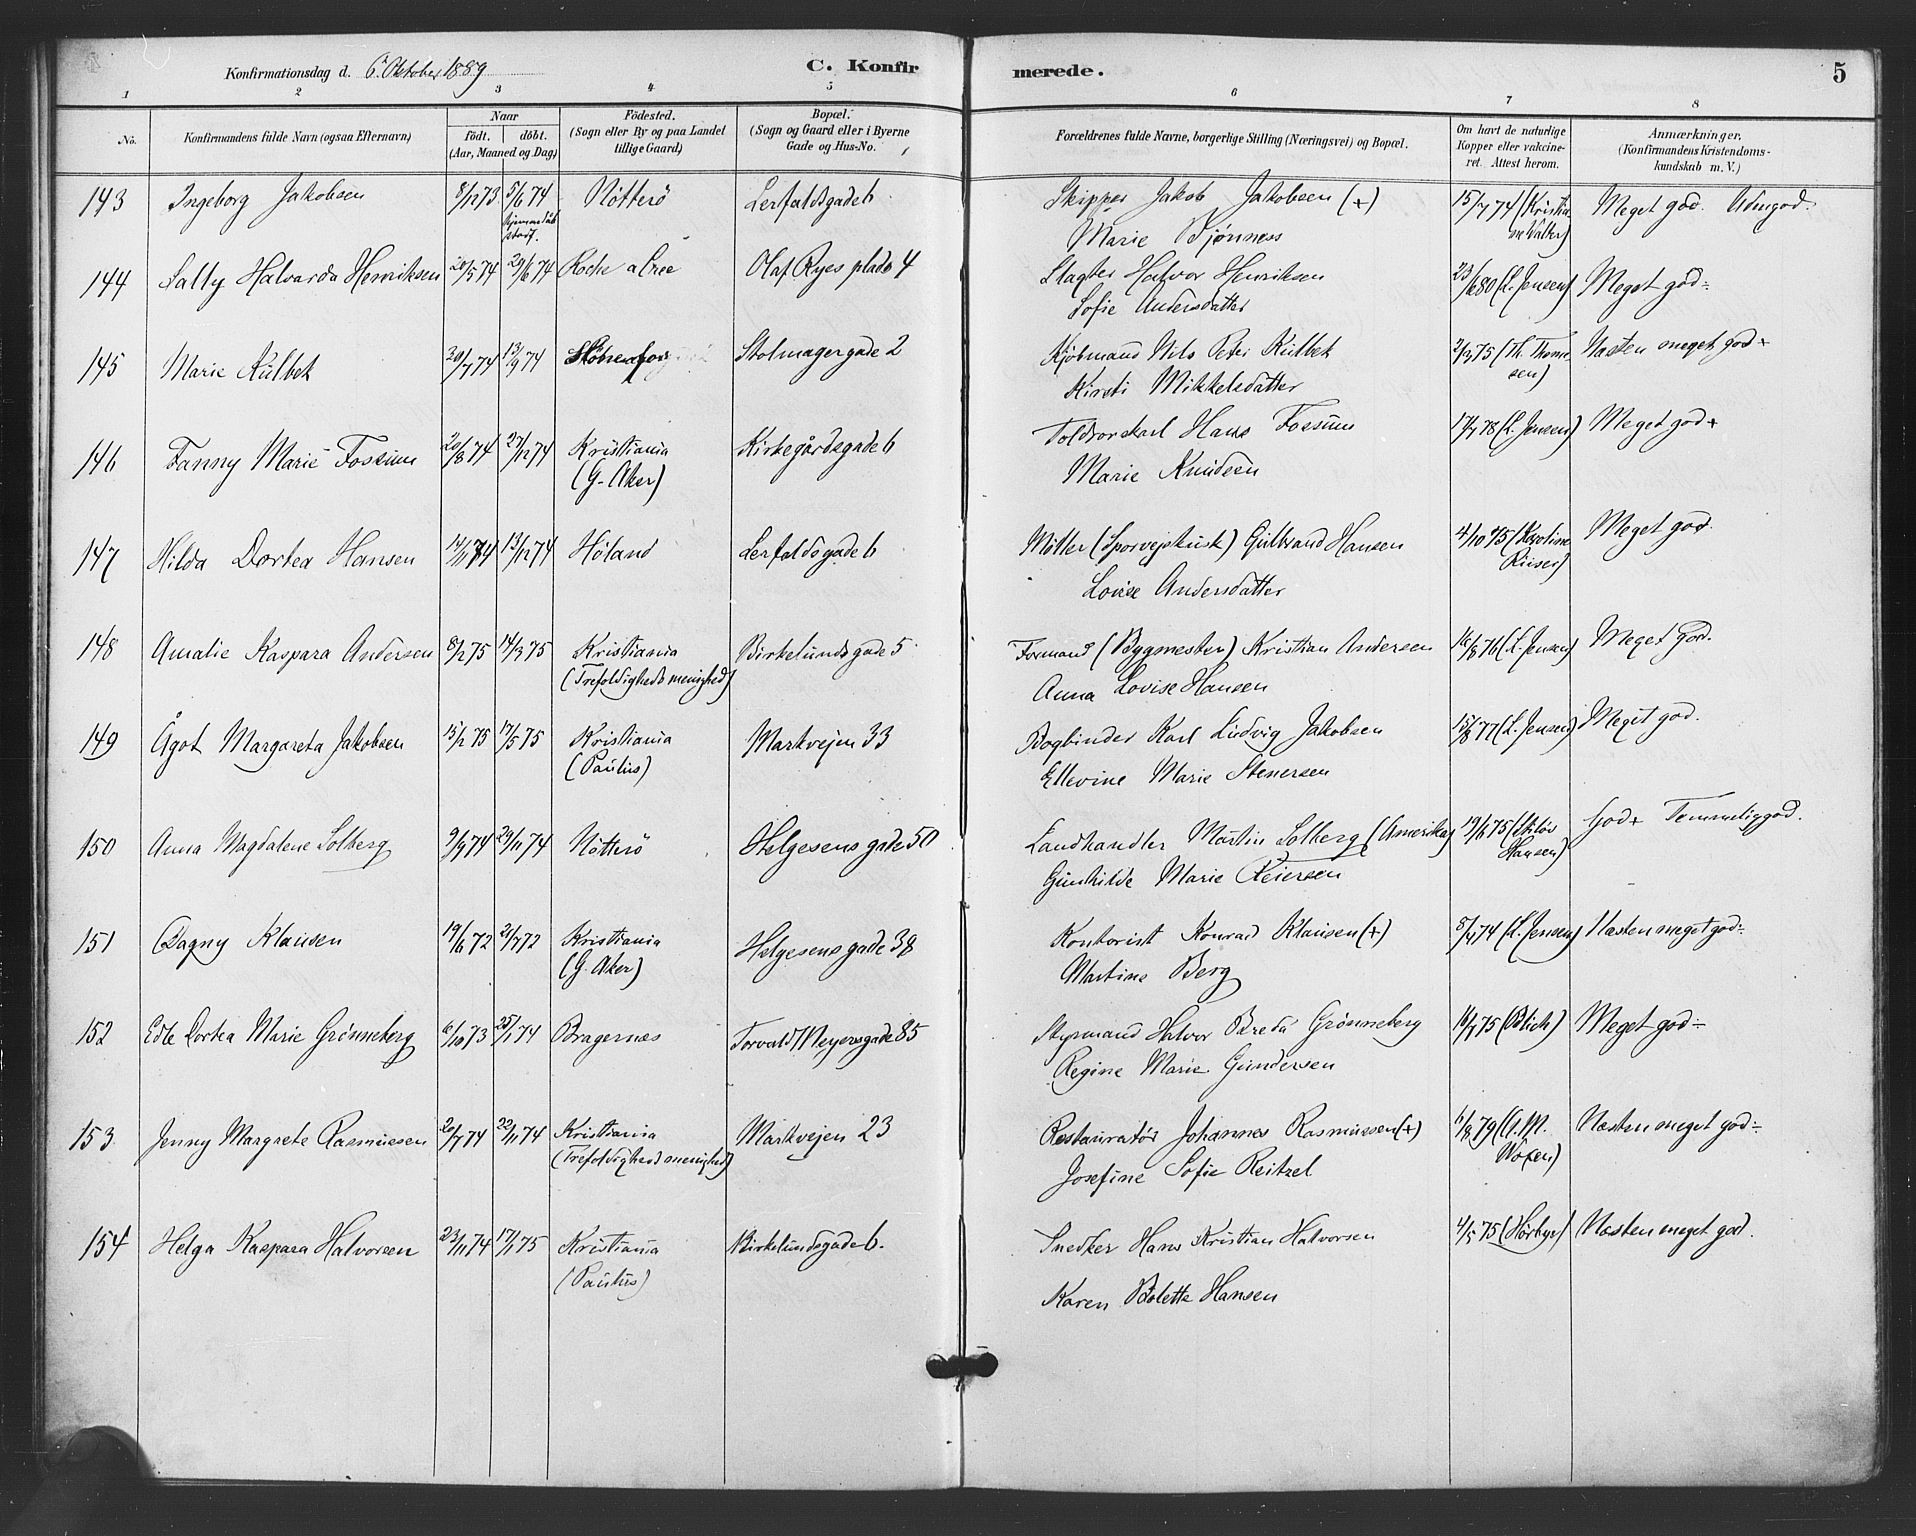 Konfirmationsdag d. 6. Oktober 1889 C. Konfirmerede. 5
1 2 3 4 5 6 7 8
No. Konfirmandens fulde Navn (ogsaa Efternavn) Naar født. døbt. (Aar, Maaned og Dag) Fødested. (Sogn eller By og paa Landet tillige Gaard) Bopæl. (Sogn og Gaard eller i Byerne Gade og Hus-No. Forældrenes fulde Navne, borgerlige Stilling (Næringsvei) og Bopæl. Om havt de naturlige Kopper eller vaccineret. Attest herom. Anmærkninger. (Konfirmandens Kristendomskundskab m. V.)
143 Ingeborg Jakobsen 8/12 73 5/6 74 Nøtterø Lerfaldsgade 6 Skipper Jakob Jakobsen (+) 15/7 74 Meget god. Udmgod.
Hjemmedøb stadf.
Marie Bjønness
144 Sally Halvarda Henriksen 20/5 74 29/6 74 Olaf Ryes plads 4 Slagter Halvor Henriksen 23/6 80 (L. Jensen) Meget god ÷
Sofie Andersdatter
145 Marie Kulbek 20/7 74 13/9 74 Stolmagergade 2 Kjøbmand Nils Peter Kulbek 2/3 75 (Th. Thomesen) Næsten meget god +
Kirsti Mikkelsdatter
146 Fanny Marie Fossum 20/8 74 27/12 74 Kristiania Kirkegårdsgade 6 Toldrorskarl Hans Fossum 17/7 78 (L. Jensen) Meget god +
(G. Aker) Marie Knudsen
147 Hilda Dortea Hansen 14/11 74 13/12 74 Høland Lerfaldsgade 6 Møller (Sporvejskusk) Gulbrand Hansen 4/10 75 (Karoline Riiser) Meget god
Lovise Andersdatter
148 Amalie Kaspara Andersen 8/2 75 14/3 75 Kristiania Birkelundsgade 5 Formand (Bygmester) Kristian Andersen 16/8 76 (L. Jensen) Meget god.
(Trefoldigheds menighed) Anna Lovise Hansen
149 Ågot Margareta Jakobsen 15/2 75 17/5 75 Kristiania Markvejen 33 Bogbinder Karl Ludvig Jakobsen 15/8 77 (L. Jensen) Meget god.
(Paulus) Ellevine Marie Stenersen
150 Anna Magdalene Solberg 9/9 74 29/11 74 Nøtterø Helgesens gade 50 Landhandler Martin Solberg (Amerika) 19/6 75 God + Temmeliggod.
Hansen)
Gunhilde Marie Reiersen
151 Dagny Klausen 19/6 72 21/7 72 Kristiania Helgesens gade 38 Kontorist Konrad Klausen (+) 8/4 74 (L. Jensen) Næsten meget god ÷
(G. Aker) Martine Berg
152 Edle Dortea Marie Grønneberg 6/10 73 25/1 74 Bragernæs Torvald Meyersgade 85 Styrmand Halvor Breda Grønneberg 16/7 75 (Blich) Meget god ÷
Regine Marie Gundersen
153 Jenny Margrete Rasmussen 20/7 74 22/11 74 Kristiania Markvejen 23 Restauratør Johannes Rasmussen (+) 6/8 79 Næsten meget god ÷
(Trefoldigheds menighed) Josefine Sofie Reitzel
154 Helga Kaspara Halvorsen 23/11 74 17/1 75 Kristiania Birkelundsgade 6. Snedker Hans Kristian Halvorsen 4/5 75 (Hørbye) Næsten meget god.
(Paulus) Karen Bolette Hansen